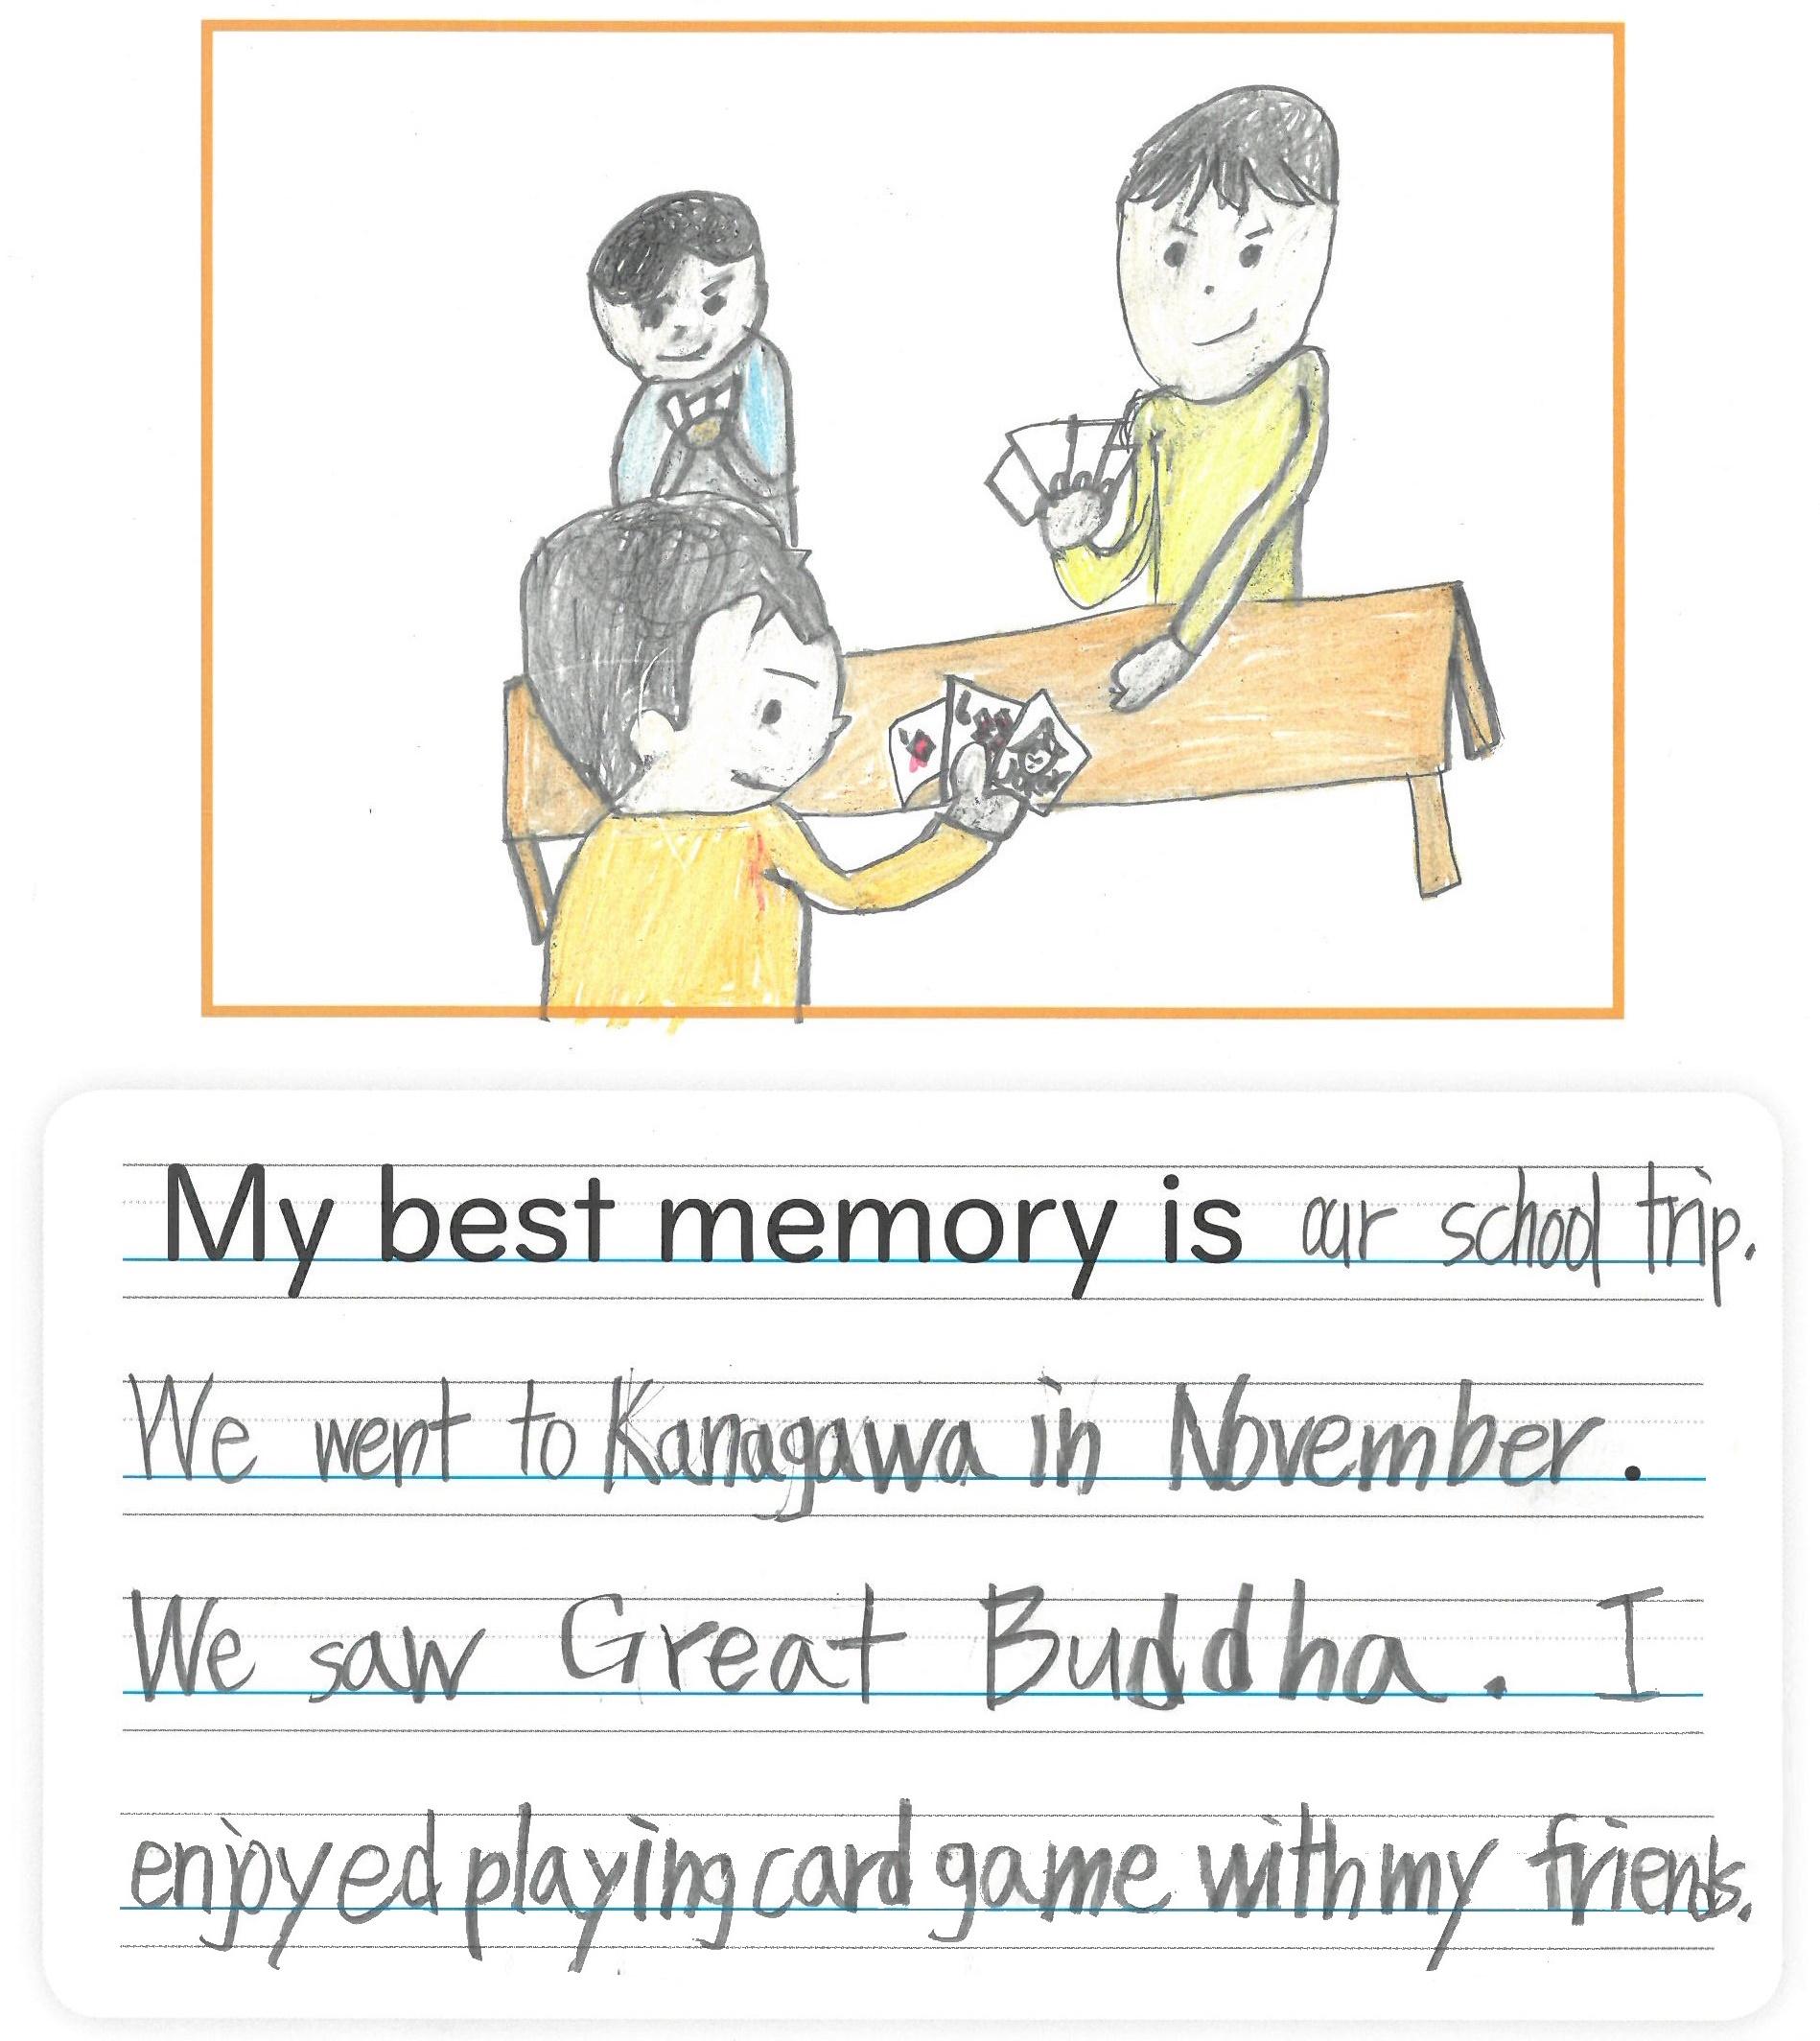 My best memory is our school trip.
We went to Kanagawa in November.
We saw Great Buddha. I
enjoyed playing card game with my friends.